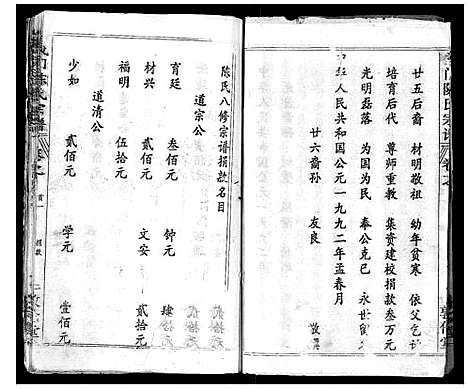 廿五后裔 材明敬祖 幼年貧寒 依父乞
培育后代 尊师重教 集资建校捐款叁万元
光明磊落 为国为民 奉公克已 永世
人民共和国公元一九九二年孟春月
廿六裔孙 友良
陈氏八修宗谱捐款名目
道宗公
育廷 叁佰元 钟元 肆
材兴 贰佰元 文安 贰拾元
福明 伍拾元
道清公
少如 贰佰元 学元 壹佰元